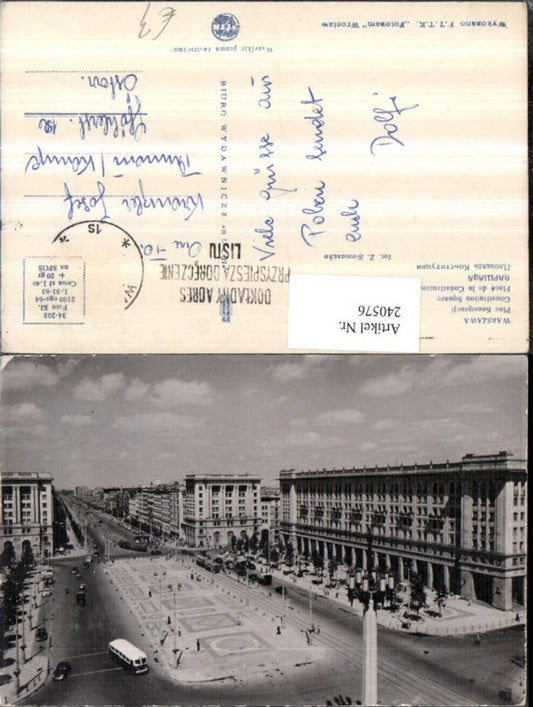 WARSZAWA
Plac Konstytucji
Constitution Square
Place de la Constitution
ВАРШАВА
Площадь Конституции
fot. Z. Siemaszko
Viele Grüsse aus
Polen sendet
euch
Dolfi
Artikel Nr.
240576
DOKŁADNY ADRES
PRZYSPIESZA DORĘCZENIE
LISTU
BIURO WYDAWNICZE
An Fa.
Josef
Ostern.
34-202
Foto Kl.
2100 egz-64
1-31-63
Cena zł 1.40
+ 20 gr
na SFOS
Wszelkie prawa zastrzeżone
Wykonano F.T.T.K. „Fotopam" Wrocław
€3